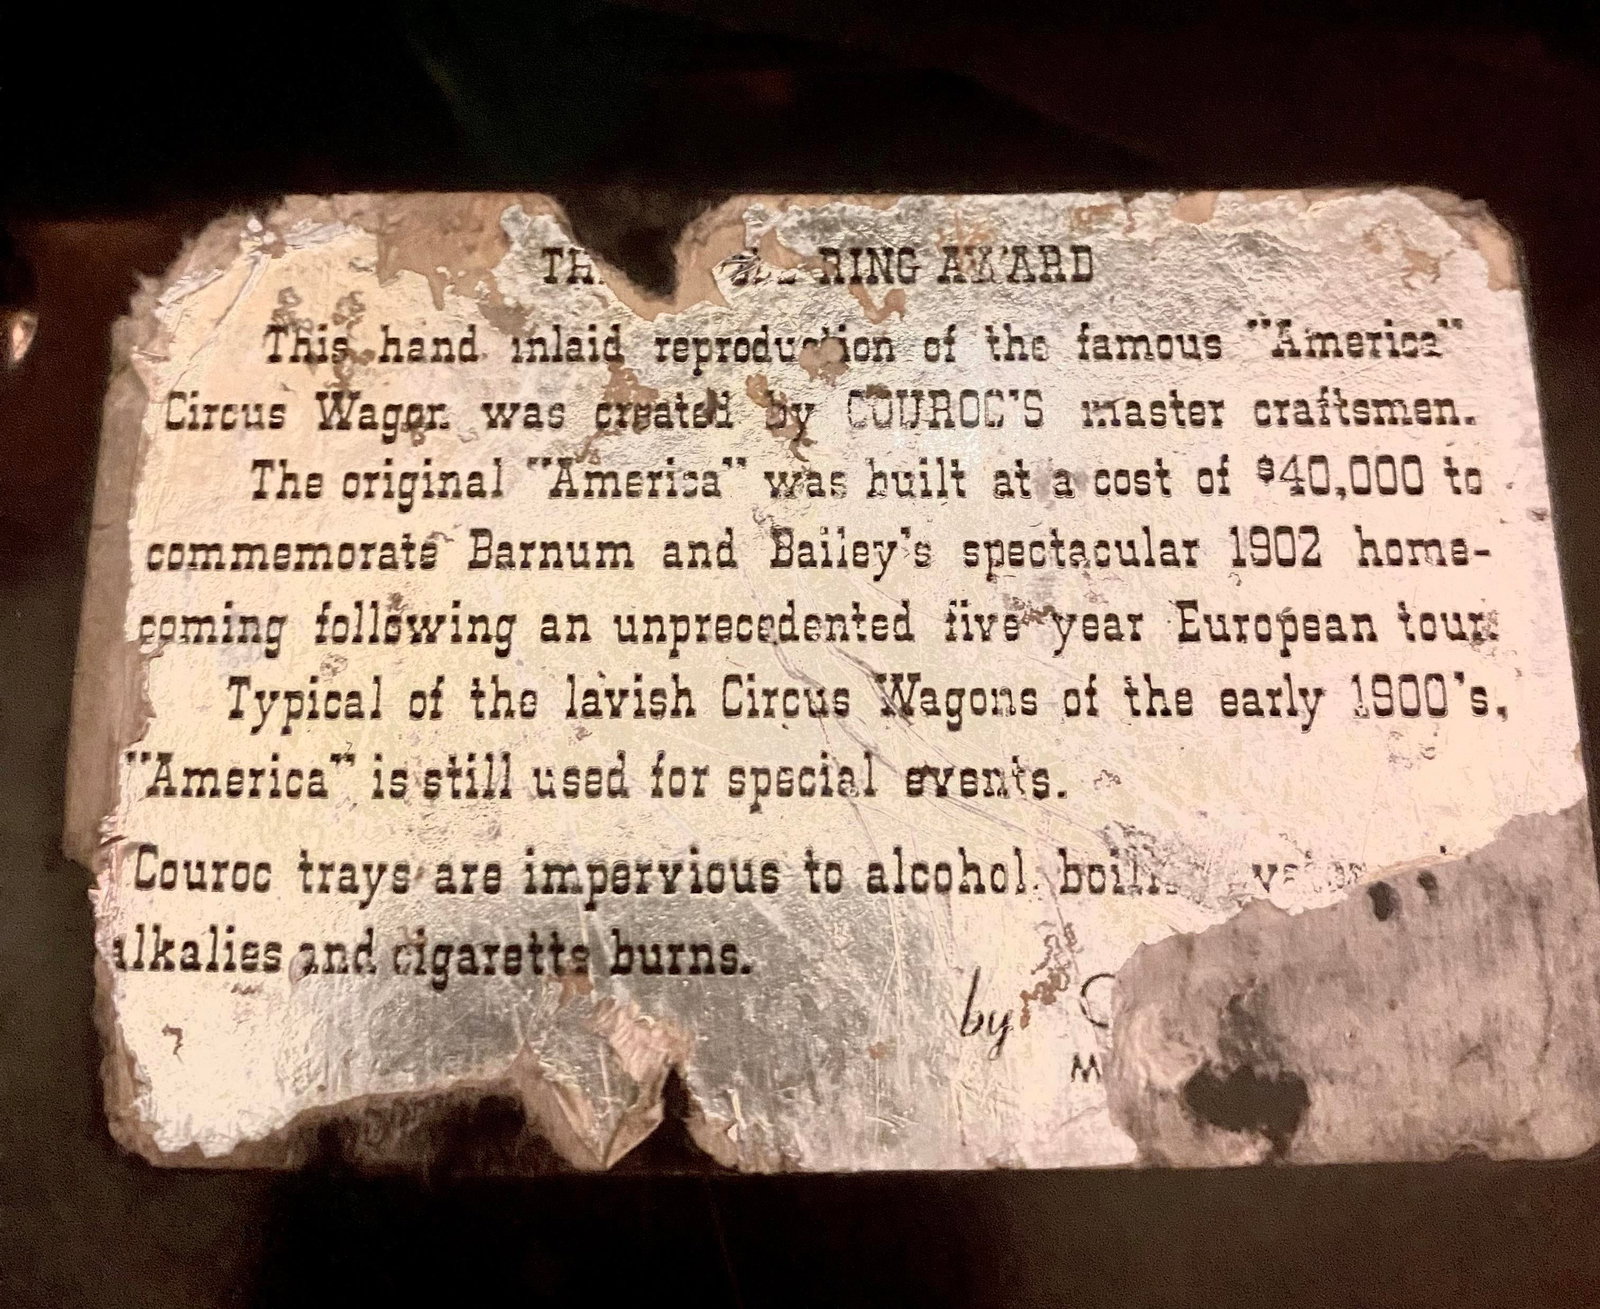 RING AWARD
This hand inlaid reproduction of the famous "America"
Circus Wagon was created by COUROC'S master craftsmen.
The original "America" was built at a cost of $40,000 to
commemorate Barnum and Bailey's spectacular 1902 home-
coming following an unprecedented five year European tour.
Typical of the lavish Circus Wagons of the early 1900's,
"America" is still used for special events.
Couroc trays are impervious to alcohol,
alkalies and cigarette burns.
by